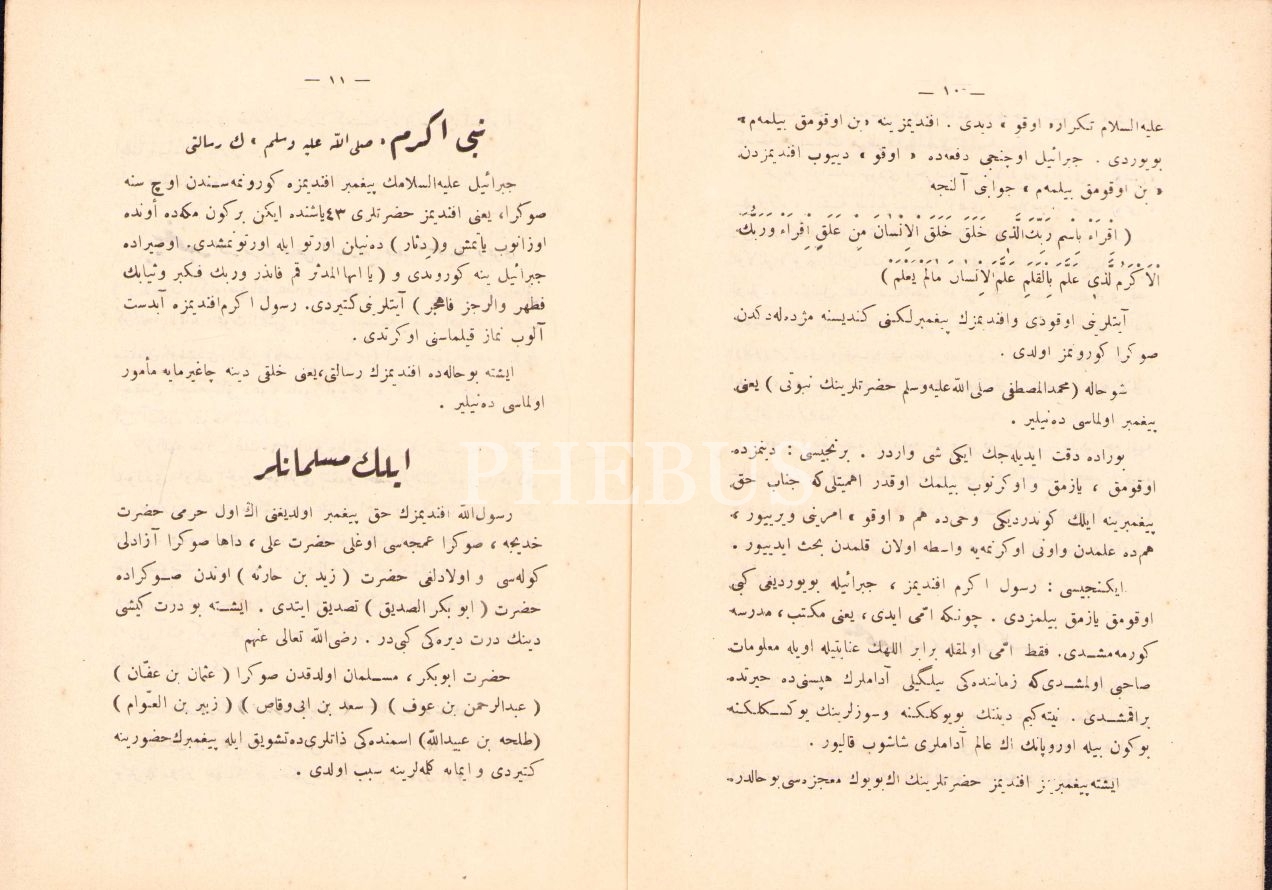 — ١٠ —
عليه‌السلام تكرار « اوقو » ديدى . افنديمز ينه « بن اوقومق بيلمه‌م »
بويوردى . جبرائيل اوچنجى دفعه‌ده « اوقو » دييوب افنديمزدن
« بن اوقومق بيلمه‌م » جوابى آلنجه
( اِقْرَاءْ بِاسْمِ رَبِّكَ الَّذى خَلَقَ خَلَقَ الْاِنْسانَ مِنْ عَلَقٍ اِقْراءْ وَرَبُّكَ
الْاَكْرَمُ الَّذى عَلَّمَ بِالْقَلَمِ عَلَّمَ الْاِنْسانَ مالَمْ يَعْلَمْ )
آيتلرينى اوقودى و افنديمزك پيغمبرلكنى كنديسنه مژده‌له‌دكدن
صوكرا كورونمز اولدى .
شو حاله ( محمد المصطفى صلى‌الله‌عليه‌وسلم حضرتلرينك نبوتى ) يعنى
پيغمبر اولماسى ده‌نيلير .
بوراده دقت ايديله‌جك ايكى شى واردر . برنجيسى : دينمزده
اوقومق ، يازمق و اوكرنوب بيلمك اوقدر اهميتلى‌كه جناب حق
پيغمبرينه ايلك كوندرديكى وحى‌ده هم « اوقو » امرينى ويرييور ،
هم‌ده علمدن و اونى اوكرنمه‌يه واسطه اولان قلمدن بحث ايدييور .
ايكنجيسى : رسول اكرم افنديمز ، جبرائيله بويورديغى كبى
اوقومق يازمق بيلمزدى . چونكه امّى ايدى ، يعنى مكتب ، مدرسه
كورمه‌مشدى. فقط امّى اولمقله برابر اللهك عنايتيله اويله معلومات
صاحبى اولمشدى‌كه زماننده‌كى بيلگيلى آداملرك هپسنى‌ده حيرتده
براقمشدى . نيته‌كيم ديننك بويوكلكنه و سوزلرينك يوكسكلكنه
بوكون بيله اوروپانك اك عالم آداملرى شاشوب قاليور .
ايشته پيغمبريمز افنديمز حضرتلرينك اك بويوك معجزه‌سى بو حالدر.
— ١١ —
نبى اكرم « صلى الله عليه وسلم » ك رسالتى
جبرائيل عليه‌السلامك پيغمبر افنديمزه كورونمه‌سندن اوچ سنه
صوكرا، يعنى افنديمز حضرتلرى ٤٣ ياشنده ايكن بركون مكه‌ده أونده
اوزانوب ياتمش و( دثار ) ده‌نيلن اورتو ايله اورتونمشدى. اوصيراده
جبرائيل ينه كوروندى و ( يا ايها المدثر قم فانذر وربك فكبر وثيابك
فطهر والرجز فاهجر ) آيتلرينى كتيردى. رسول اكرم افنديمزه آبدست
آلوب نماز قيلماسنى اوكرتدى .
ايشته بوحاله‌ده افنديمزك رسالتى،يعنى خلقى دينه چاغيرمايه مأمور
اولماسى ده‌نيلير .
ايلك مسلمانلر
رسول‌الله افنديمزك حق پيغمبر اولديغنى اك اول حرمى حضرت
خديجه ، صوكرا عمجه‌سى اوغلى حضرت على ، داها صوكرا آزادلى
كوله‌سى و اولادلغى حضرت ( زيد بن حارثه ) اوندن صوكراده
حضرت ( ابو بكر الصديق ) تصديق ايتدى . ايشته بو درت كيشى
دينك درت ديره‌كى كبى‌در . رضى‌الله تعالى عنهم
حضرت ابوبكر ، مسلمان اولدقدن صوكرا ( عثمان بن عفّان )
( عبدالرحمن بن عوف ) ( سعد بن ابى‌وقاص ) ( زبير بن العّوام )
(طلحه بن عبيدالله) اسمنده‌كى ذاتلرى‌ده تشويق ايله پيغمبرك حضورينه
كتيردى و ايمانه كلمه‌لرينه سبب اولدى .
PHEBUS